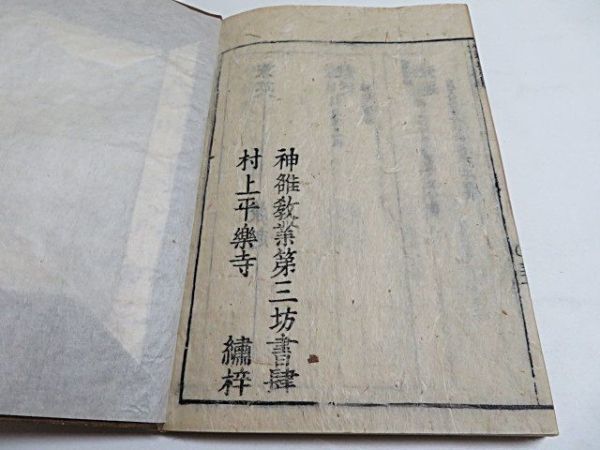 神雒教業第三坊書肆
村上平樂寺 繡梓